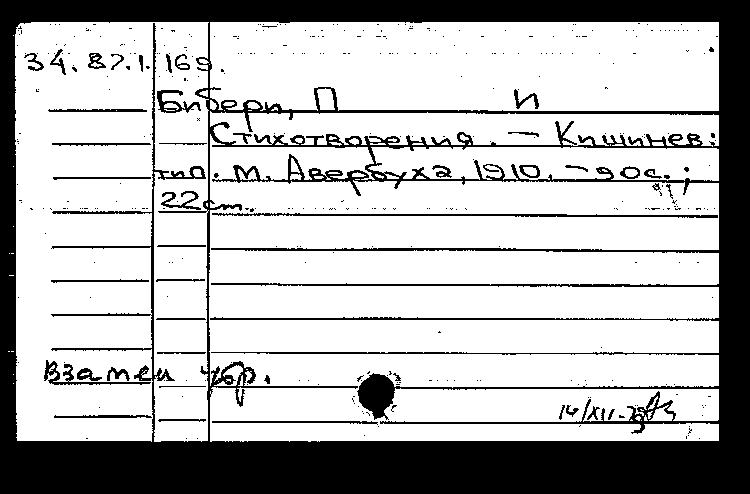 34.87.1.169.
Бибери, П И
Стихотворения. — Кишинев:
тип. М. Авербуха, 1910. — 90с.;
22cm.
Взамен убр.
14/XII-